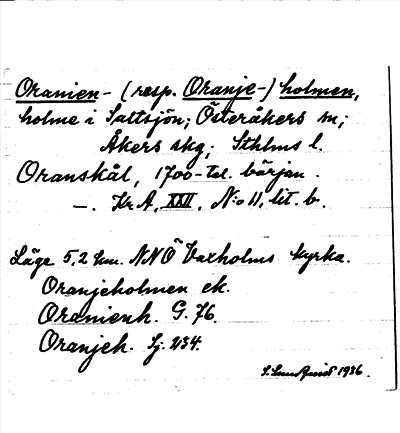 Oranien- (resp. Oranje-) holmen,
holme i Saltsjön; Österåkers sn;
Åkers skg; Sthlms l.
Oranskäl, 1700-tal. början.
—. Kr.A, XXII, N:o 11, lit. b.
Läge 5,2 km. NNÖ Vaxholms kyrka.
Oranjeholmen ek.
Oranienh. G. 76.
Oranjeh. Sj. 234.
1936.